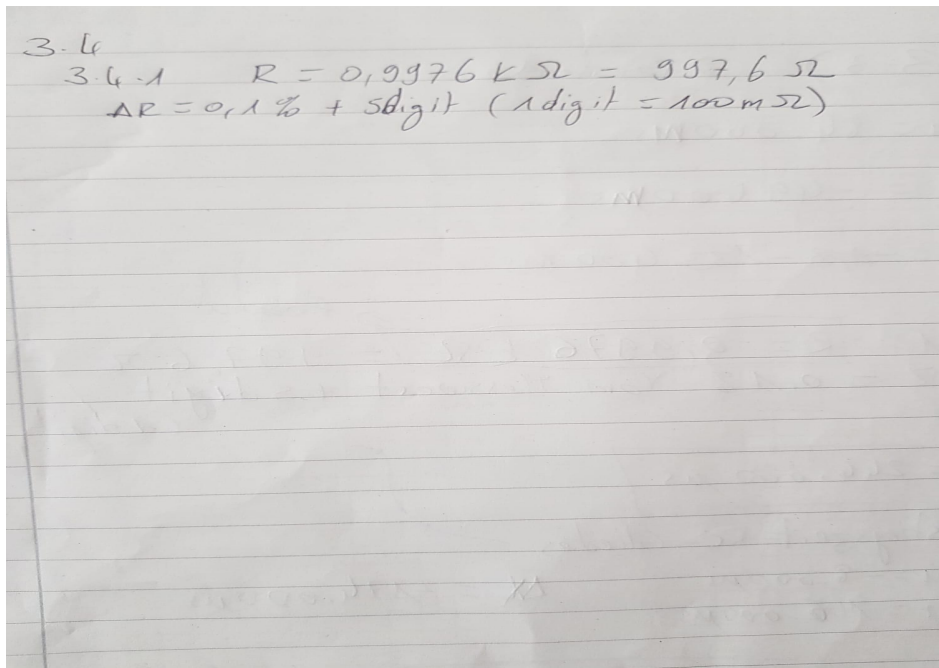 3.4
3.4.1 R = 0,9976 kΩ = 997,6 Ω
ΔR = 0,1 % + 5digit (1digit = 100mΩ)